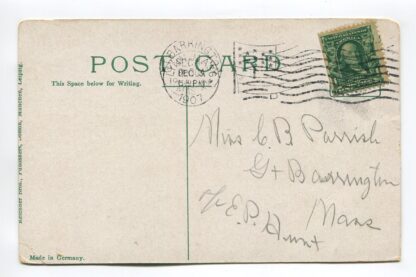 POST CARD
This Space below for Writing.
GT. BARRINGTON
DEC 9
1907
Miss C B Parrish
Gt Barrington
c/o E. P. Hunt
Mass
Made in Germany.